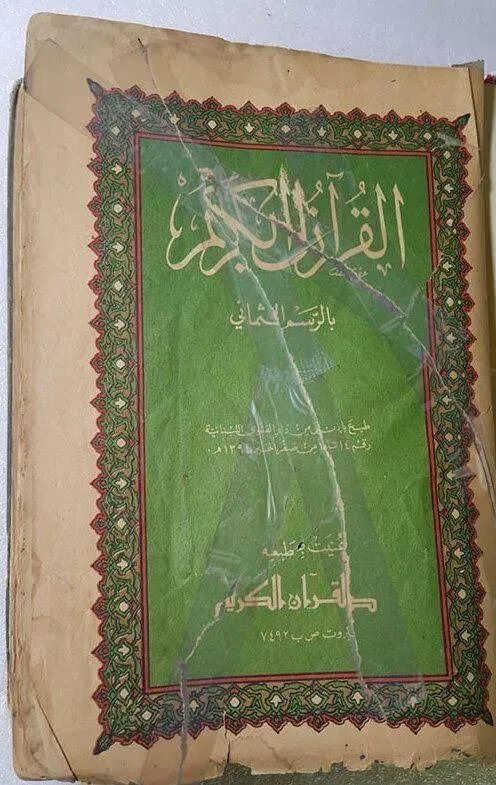 القُرآنُ الكَريم
بالرّسم العثماني
طبع بإذن من دار الفتوى اللبنانية
رقم ١٤ من صفر الخير هـ
عُنيت بطبعه
القرآن الكريم
بيروت ص ب ٧٤٩٢